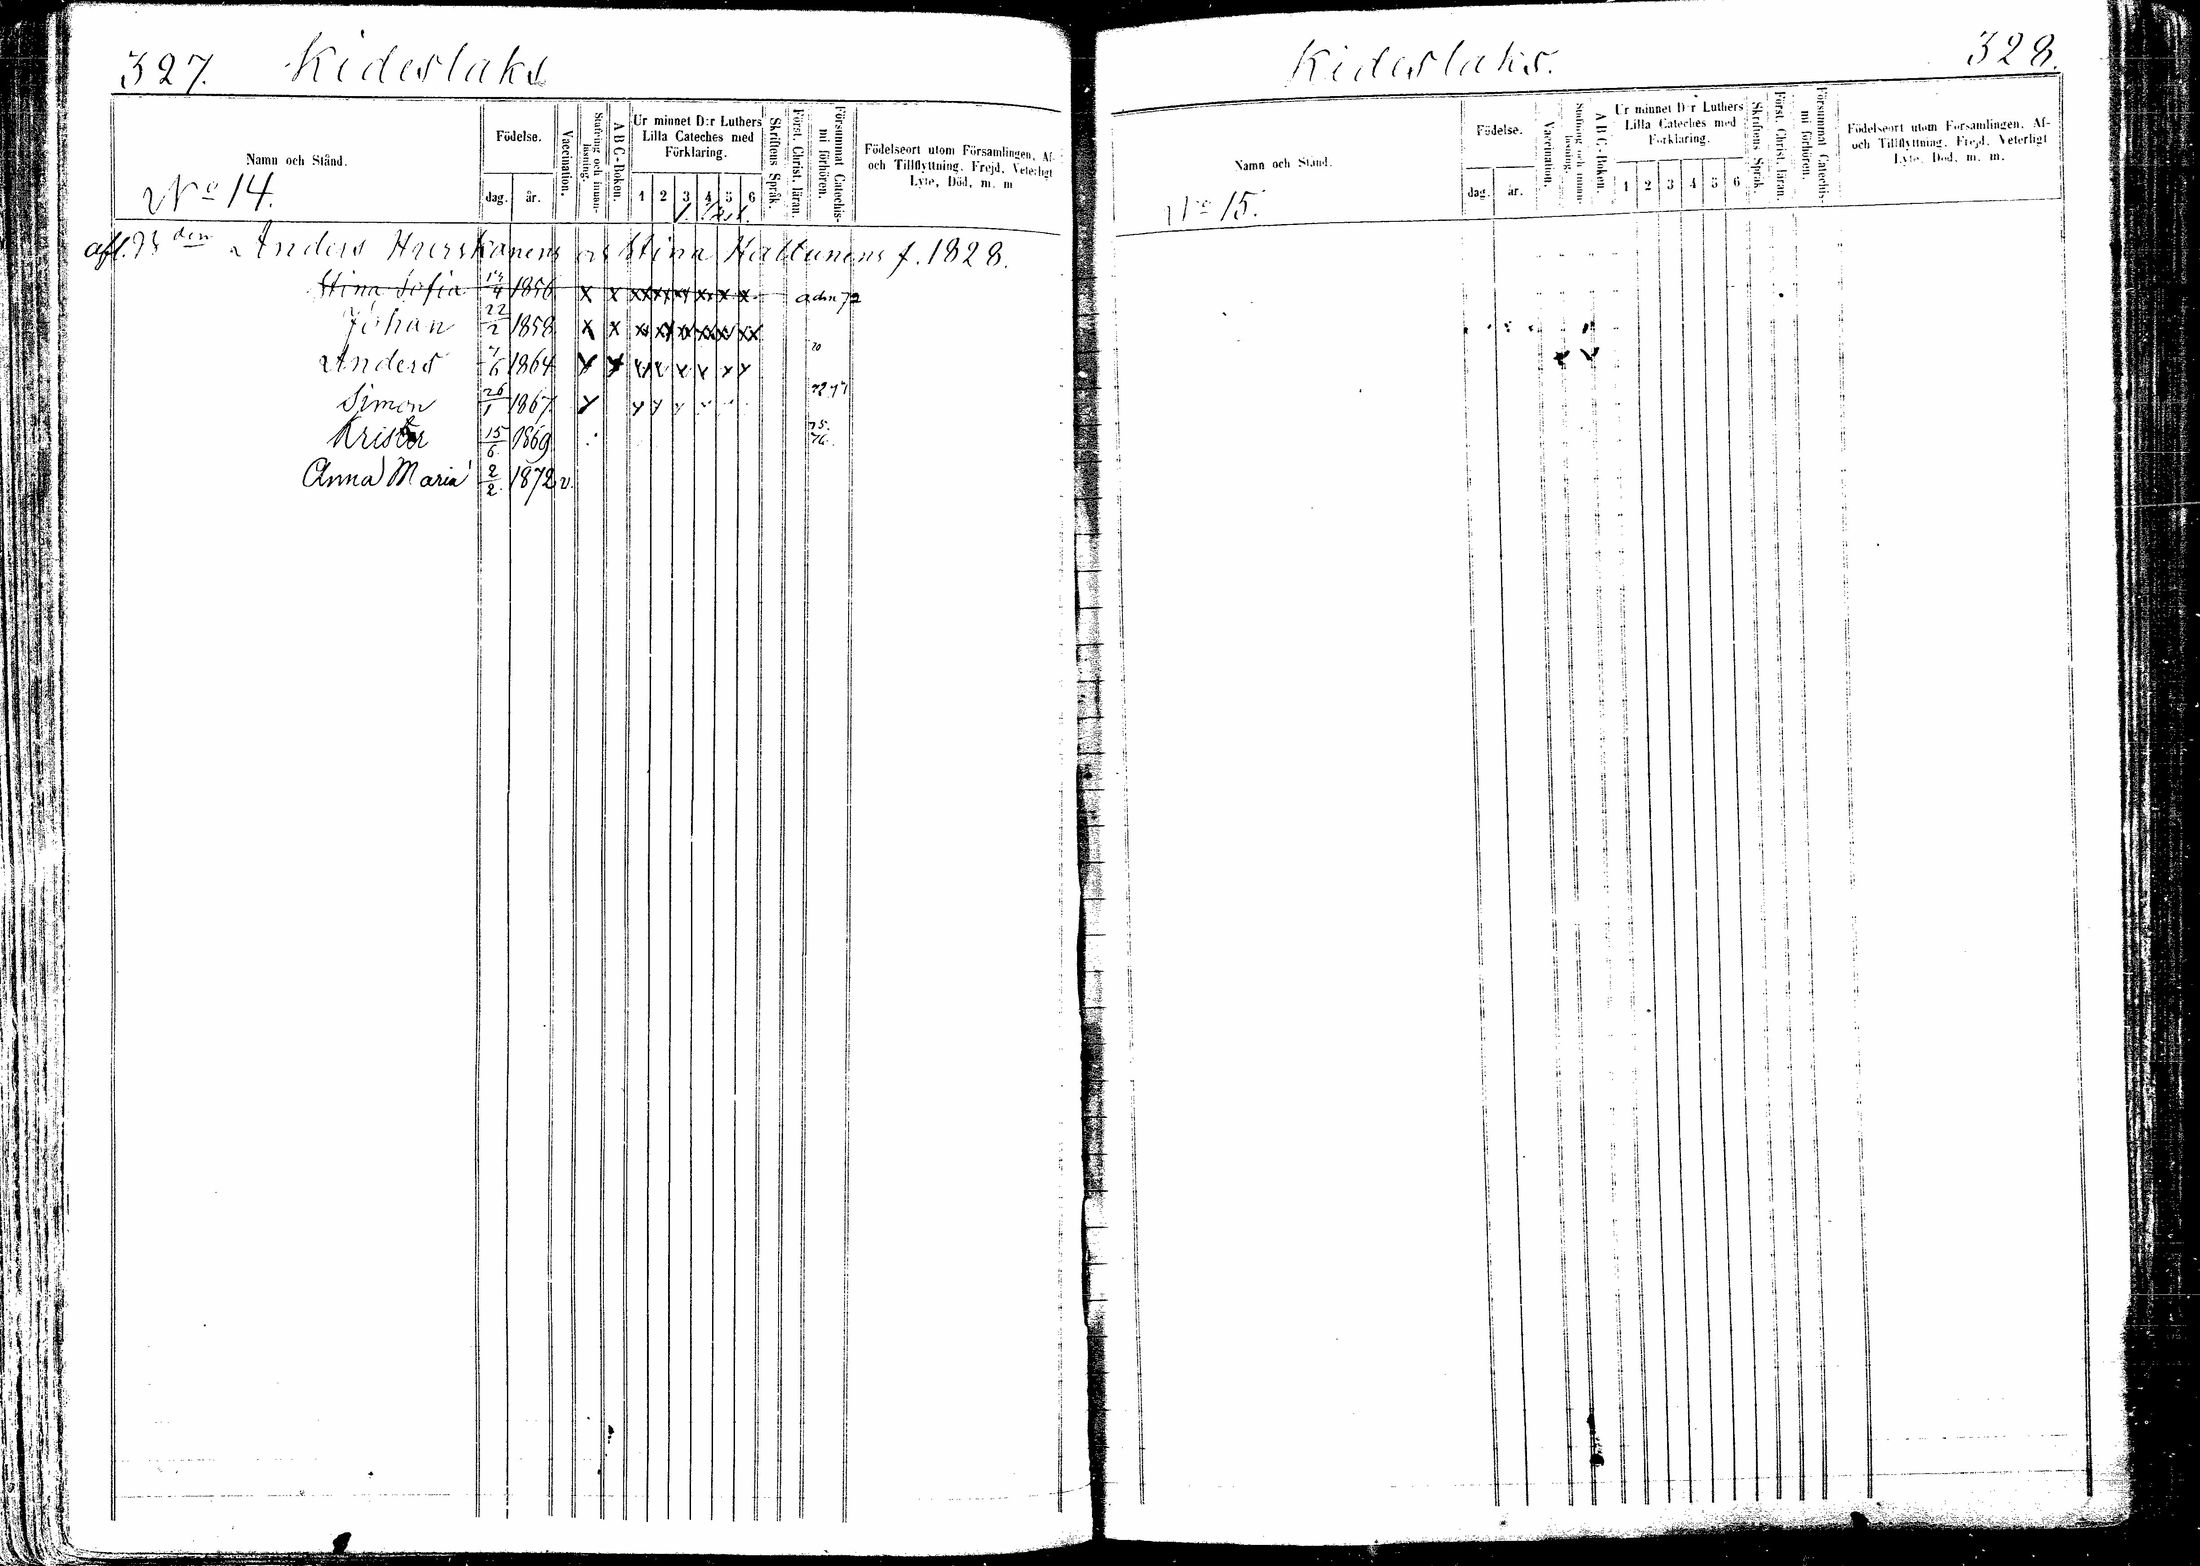 327. Kideslaks
Namn och Stånd.
No 14.
Födelse.
dag. år.
Vaccination.
Stafning och innan-läsning.
A B C-Boken.
Ur minnet D:r Luthers
Lilla Cateches med
Förklaring.
1 2 3 4 5 6
Skriftens Språk.
Först. Christ. läran.
Försummat Catechis-
mi förhören.
Födelseort utom Församlingen, Af-
och Tillflyttning, Frejd, Veterligt
Lyte, Död, m. m
afl. den Anders Hurskanens och Stina Hattunens f. 1828.
Stina Sofia 1856 x x xx xx xx x x x adm 72
Johan 22/2 1858 x x
Anders 1864
Simon 26/1 1867
Krister 15/6 1869 75. 76.
Anna Maria 2/2 1872 v.
Kideslaks. 328.
Namn och Stånd.
No 15.
Födelse.
dag. år.
Vaccination.
Stafning och innan-
läsning.
A B C-Boken.
Ur minnet D:r Luthers
Lilla Cateches med
Förklaring.
1 2 3 4 5 6
Skriftens Språk.
Först. Christ. läran.
Försummat Catechis-
mi förhören.
Födelseort utom Församlingen, Af-
och Tillflyttning, Frejd, Veterligt
Lyte, Död, m. m.